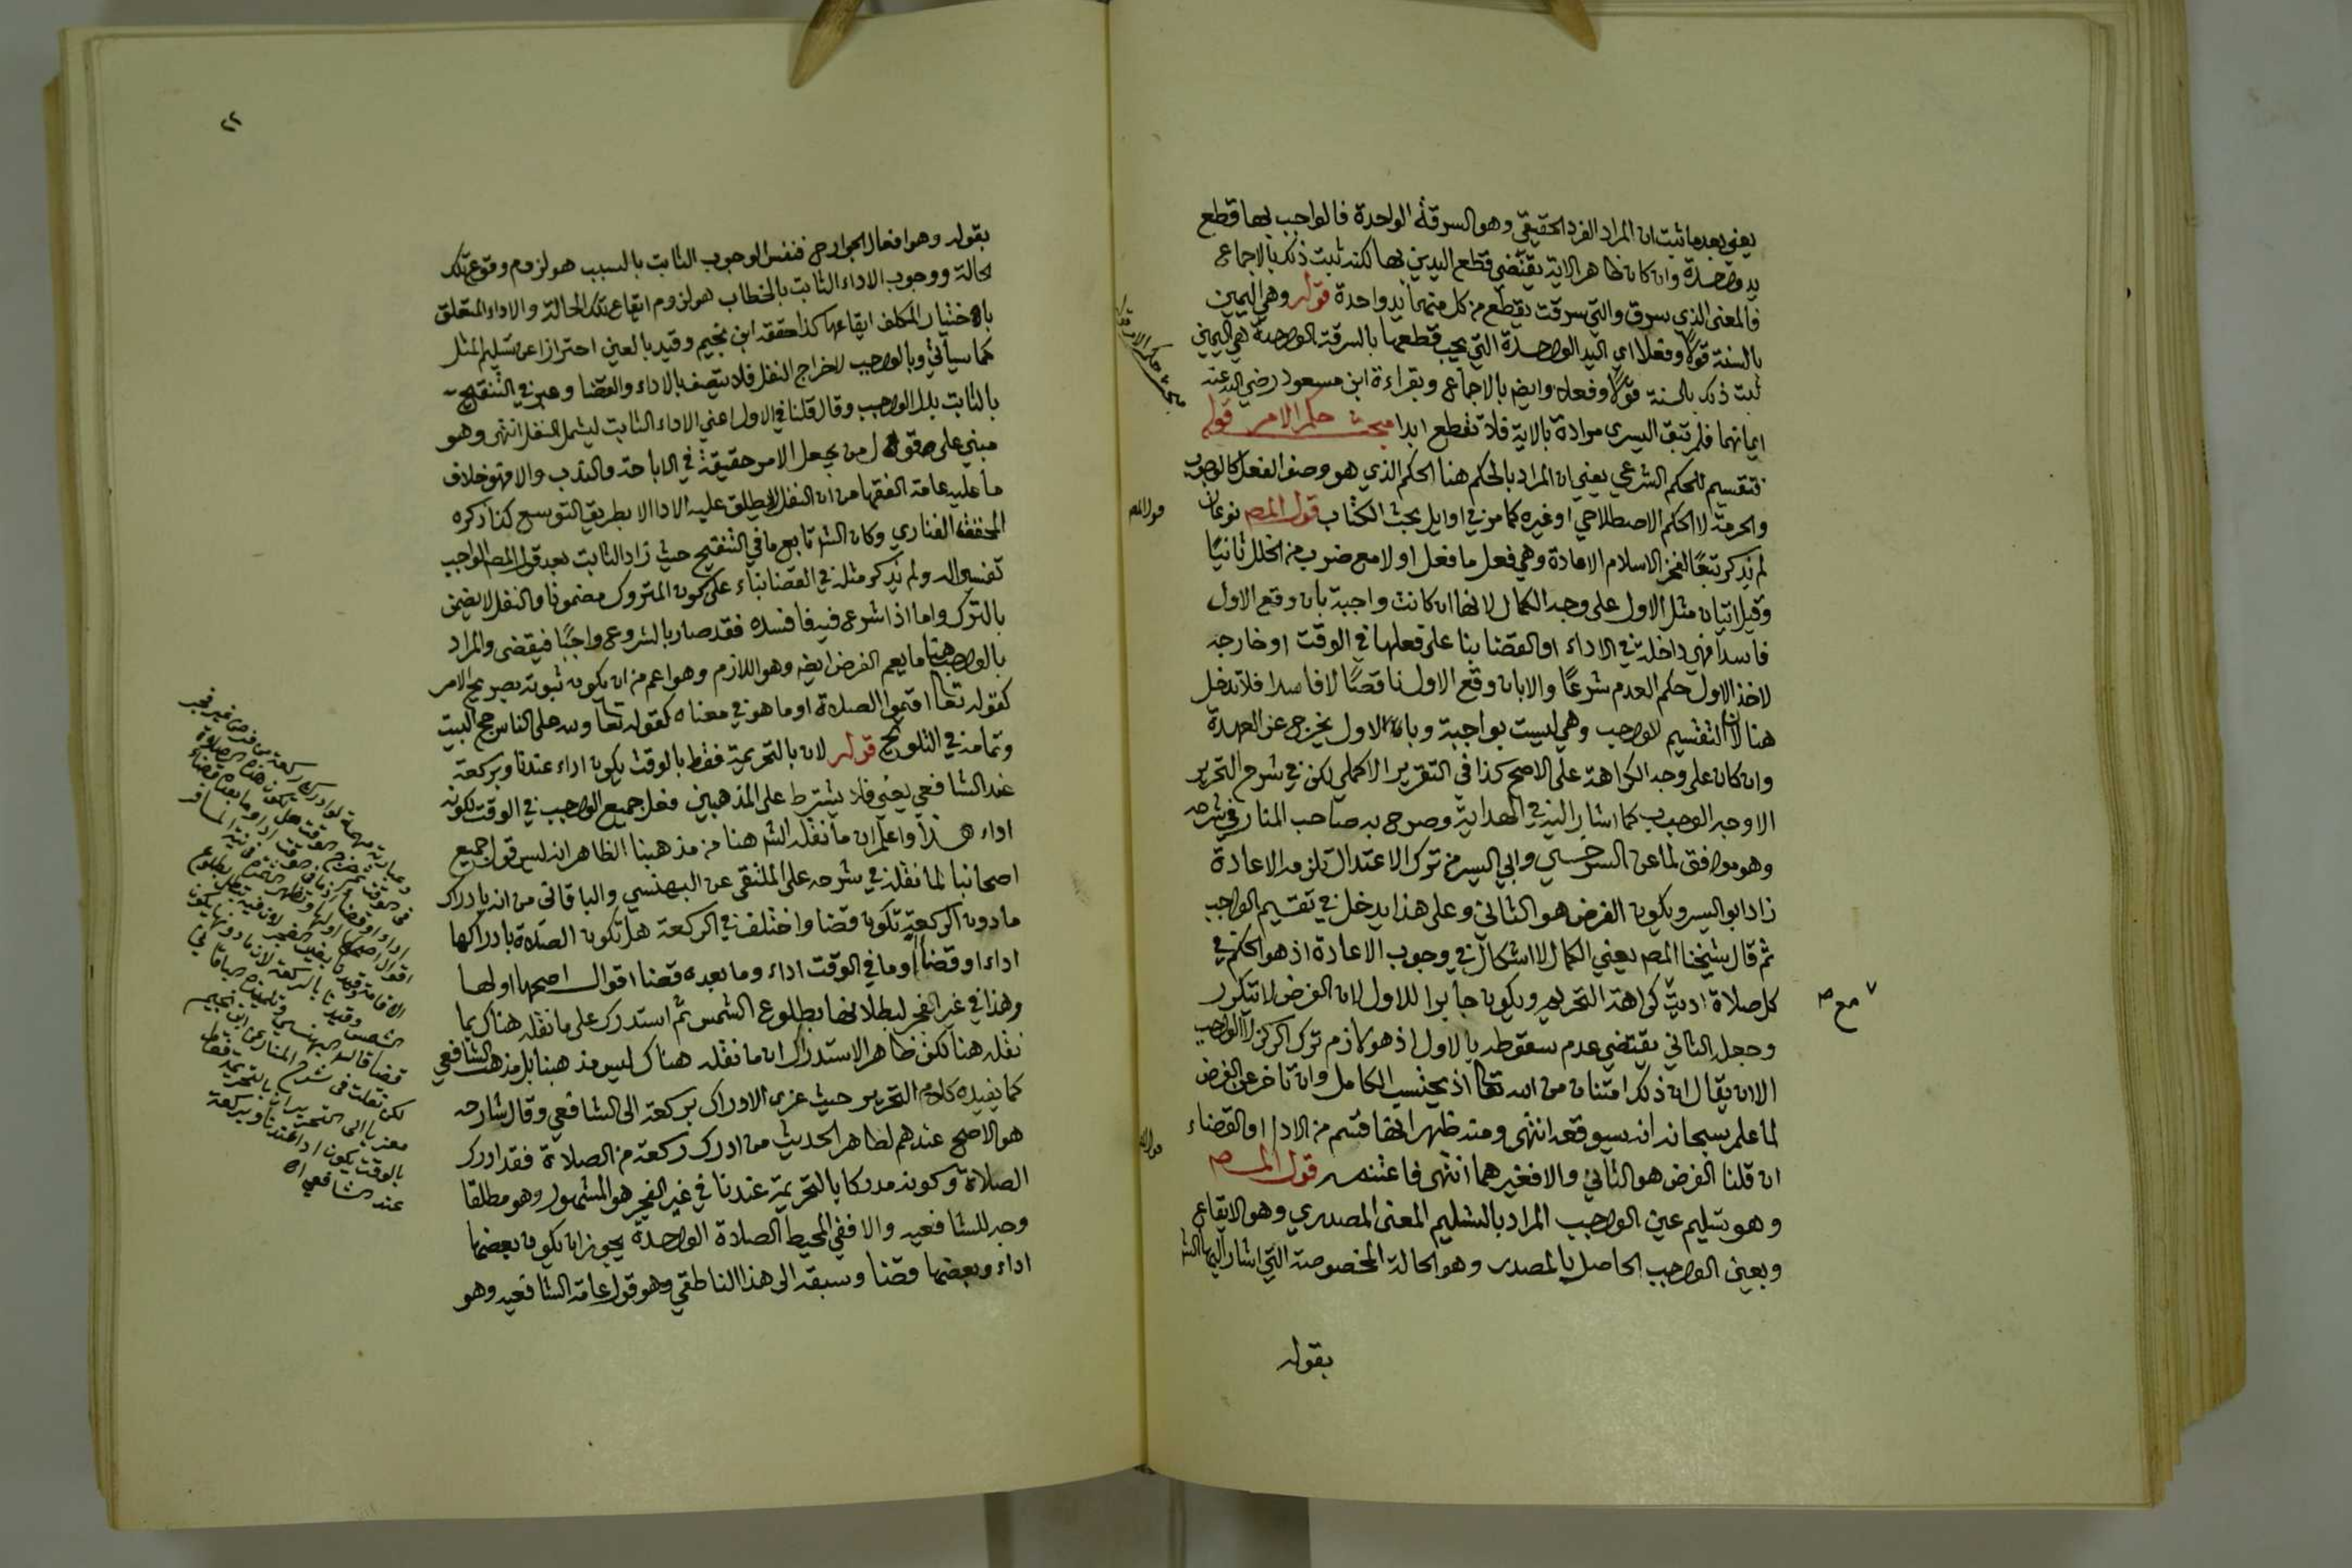 يعني بعدما ثبت ان المراد الفرد الحقيقي وهو السرقة الواحدة فالواجب بها قطع
يد واحدة وان كان ظاهر الاية يقتضي قطع اليدين بها لكنه ثبت ذلك بالاجماع
فالمعنى الذي سرق والتي سرقت يقطع من كل منهما يد واحدة قوله وهي اليمين
بالسنة قولا وفعلا اي اليد الواحدة التي يجب قطعها بالسرقة الواحدة هي اليمنى
ثبت ذلك بالسنة قولا وفعلا وايضا بالاجماع وبقراءة ابن مسعود رضي الله عنه
ايمانهما فلم تبق اليسرى مرادة بالاية فلا تقطع ابدا مبحث حكم الامر قوله
فتقسيم للحكم الشرعي يعني ان المراد بالحكم هنا الحكم الذي هو وصف الفعل كالوجوب
والحرمة لا الحكم الاصطلاحي او غيره كما مر في اوايل بحث الكتاب قول المص نوعان
لم يذكر تبعًا لفخر الاسلام الاعادة وهي فعل ما فعل اولا مع ضرب من الخلل ثانيًا
وقيل اتيان مثل الاول على وجه الكمال لانها ان كانت واجبة بان وقع الاول
فاسدا فهي داخلة في الاداء او القضا بنا على فعلها في الوقت او خارجه
لاخذ الاول حكم العدم شرعًا والا بان وقع الاول ناقصًا لا فاسدا فلا تدخل
هنا لان التقسيم للواجب وهي ليست بواجبة وبالاول يخرج عن العهدة
وان كان على وجه الكراهة على الاصح كذا في التقرير الاكملي لكن في شرح التحرير
الاوجه الوجوب كما اشار اليه في الهداية وصرح به صاحب المنار في شرحه
وهو موافق لما عن السرخسي وابي اليسر من ترك الاعتدال تلزمه الاعادة
زاد ابو اليسر ويكون الفرض هو الثاني وعلى هذا يدخل في تقسيم الواجب
ثم قال شيخنا المص يعني الكمال لا اشكال في وجوب الاعادة اذ هو الحكم في
كل صلاة اديت مع كراهة التحريم ويكون جابرا للاول لان الفرض لا يتكرر
وجعله الثاني يقتضي عدم سقوطه بالاول اذ هو لازم ترك الركن لا الواجب
الا ان يقال ان ذلك امتنان من الله تعا اذ يحتسب الكامل وان تاخر عن الفرض
لما علم سبحانه انه سيوقعه انتهى ومنه ظهر انها قسم من الادا او القضاء
ان قلنا الفرض هو الثاني والا فغيرهما انتهى فاغتنمه قول المص
وهو تسليم عين الواجب المراد بالتسليم المعنى المصدري وهو الايقاع
وبعين الواجب الحاصل بالمصدر وهو الحالة المخصوصة التي اشار اليها الش
بقوله
مبحث حكم الامر قوله
قول المص
مع ص
٢٢
بقوله وهو افعال الجوارح فنفس الوجوب الثابت بالسبب هو لزوم وقوع تلك
الحالة ووجوب الاداء الثابت بالخطاب هو لزوم ايقاع تلك الحالة والاداء المتعلق
باختيار المكلف ايقاعها كذا حققه ابن نجيم وقيد بالعين احترازا عن تسليم المثل
كما سياتي وبالواجب لاخراج النفل فلا يتصف بالاداء والقضا وعبر في التنقيح
بالثابت بدل الواجب وقال قلنا في الاول اعني الاداء الثابت ليشمل النفل انتهى وهو
مبني على قول من يجعل الامر حقيقة في الاباحة والندب والا فهو خلاف
ما عليه عامة الفقها من ان النفل لا يطلق عليه الادا الا بطريق التوسع كذا ذكره
المحقق الفناري وكان الش تابع ما في التنقيح حيث زاد الثابت بعد قول المص الواجب
تفسيرا له ولم يذكر مثله في القضا بناء على كون المتروك مضمونا والنفل لا يضمن
بالترك واما اذا شرع فيه فافسده فقد صار بالشروع واجبًا فيقضى والمراد
بالواجب هنا ما يعم الفرض ايضا وهو اللازم وهو اعم من ان يكون ثبوته بصريح الامر
كقوله تعا اقيموا الصلاة او ما هو في معناه كقوله تعا ولله على الناس حج البيت
وتمامه في التلويح قوله لان بالتحريمة فقط بالوقت يكون اداء عندنا وبركعة
عند الشافعي يعني فلا يشترط على المذهبين فعل جميع الواجب في الوقت لكونه
اداء هذا واعلم ان ما نقله الش هنا من مذهبنا الظاهر انه ليس قول جميع
اصحابنا لما نقله في شرحه على الملتقى عن البهنسي والباقاني من انه بادراك
ما دون الركعة تكون قضا واختلف في الركعة هل تكون الصلاة بادراكها
اداء او قضا او ما في الوقت اداء وما بعده قضا اقوال اصحها اولها
وهذا في غير الفجر لبطلانها بطلوع الشمس ثم استدرك على ما نقله هناك بما
نقله هنا لكن ظاهر الاستدراك ان ما نقله هناك ليس مذهبنا بل مذهب الشافعي
كما يفيده كلام التحرير حيث عزى الادراك بركعة الى الشافعي وقال شارحه
هو الاصح عندهم لظاهر الحديث من ادرك ركعة من الصلاة فقد ادرك
الصلاة وكونه مدركا بالتحريمة عندنا في غير الفجر هو المشهور وهو مطلقا
وجه للشافعيه والا ففي المحيط الصلاة الواحدة يجوز ان يكون بعضها
اداء وبعضها قضا وسبقه الى هذا الناطقي وهو قول عامة الشافعيه وهو
قضا قاله البهنسي وتلميذه الباقاني
لكن نقلت في شرح المنار عن ابن نجيم
معزيا الى التحرير ان بالتحريمة فقط
بالوقت يكون اداء عندنا وبركعة
عند الشافعي اه